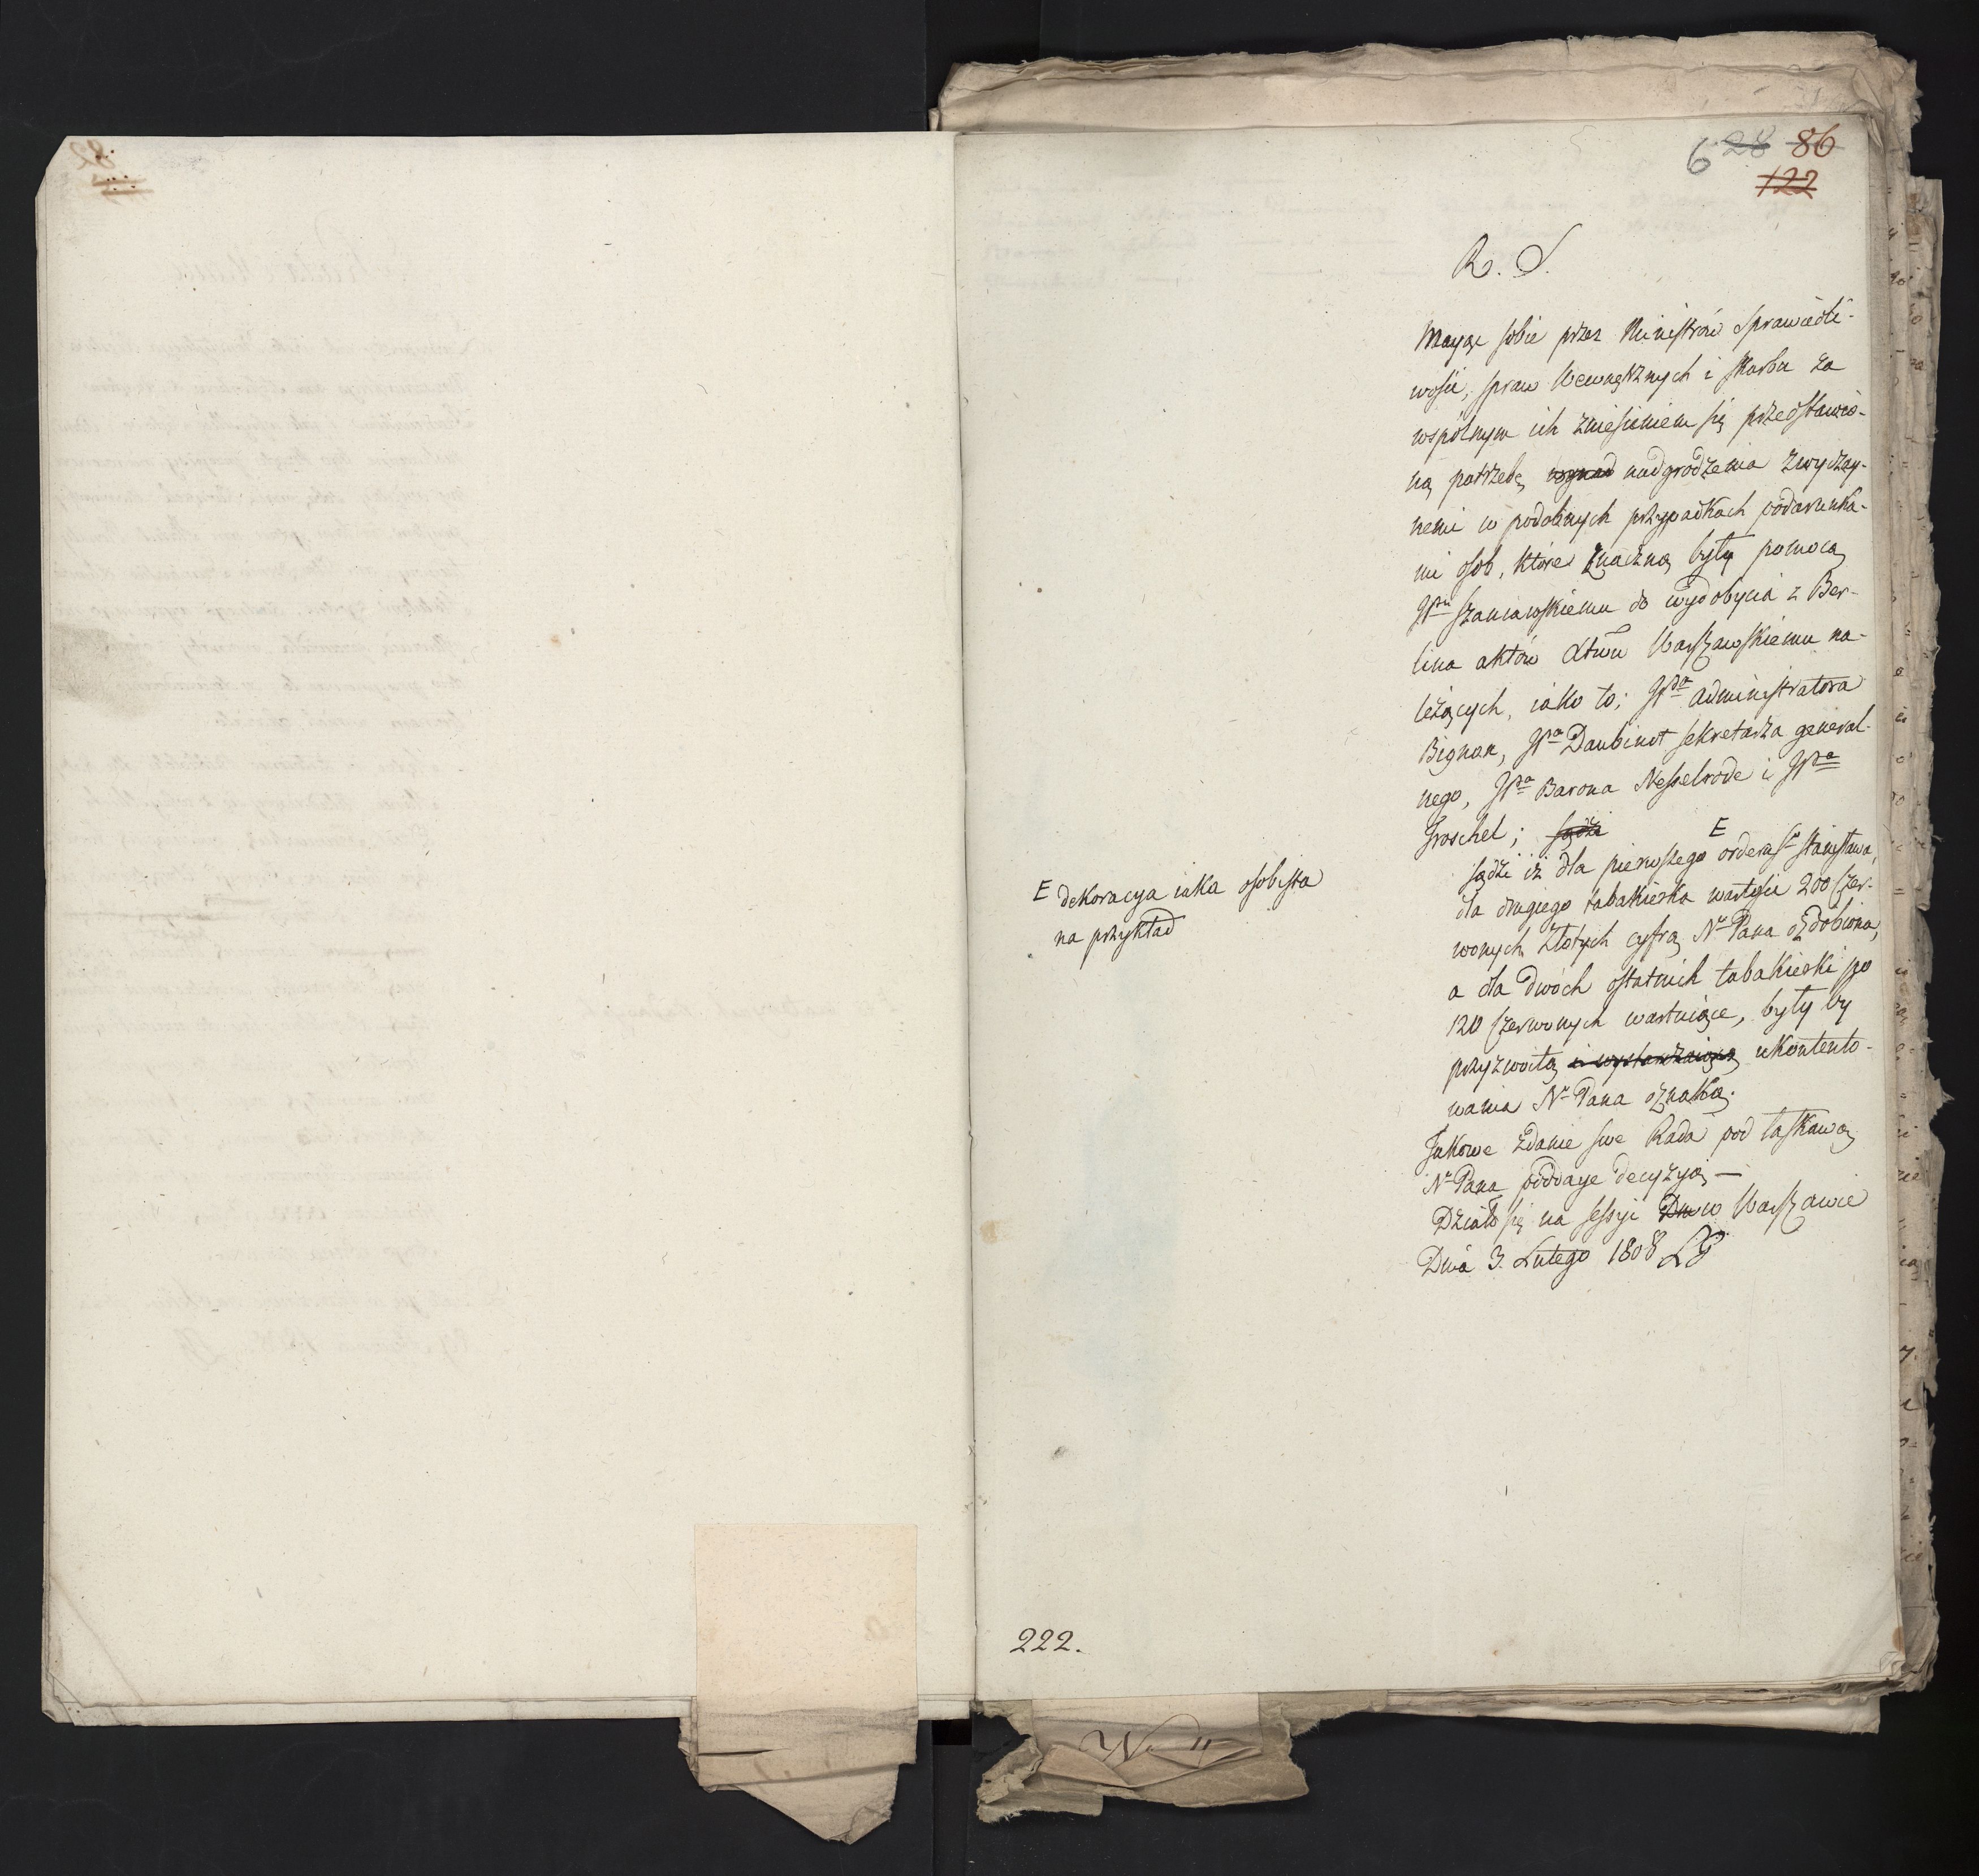 6 28 86
122
R. S.
Maiąc sobie przez Ministrów Sprawiedli-
wości, spraw Wewnętrznych i Skarbu za
wspólnym ich zniesieniem się przedstawio-
ną potrzebę nadgrodzenia zwyczay-
nemi w podobnych przypadkach podarunka-
mi osob, które znaczną były pomocą
JPu Szaniawskiemu do wydobycia z Ber-
lina aktów Xtwu Warszawskiemu na-
leżących, iako to; JPa Administratora
Bignon, JPa Daubinot sekretarza general-
nego, JPa Barona Nesselrode i JPa
Froschel; sądzi
sądzi iż dla pierwszego E order Sgo Stanisława,
dla drugiego tabakierka wartości 200 czer-
wonych Złotych cyfrą N. Pana ozdobiona,
a dla dwóch ostatnich tabakierki po
120 czerwonych wartuiące, były by
przyzwoitą i wystarczaiącą ukontento-
wania N. Pana oznaką.
Jakowe zdanie swe Rada pod łaskawą
N. Pana poddaye decyzyą —
Działo się na sessyi Dn w Warszawie
Dnia 3. Lutego 1808
E dekoracya iaka osobista
na przykład
222.